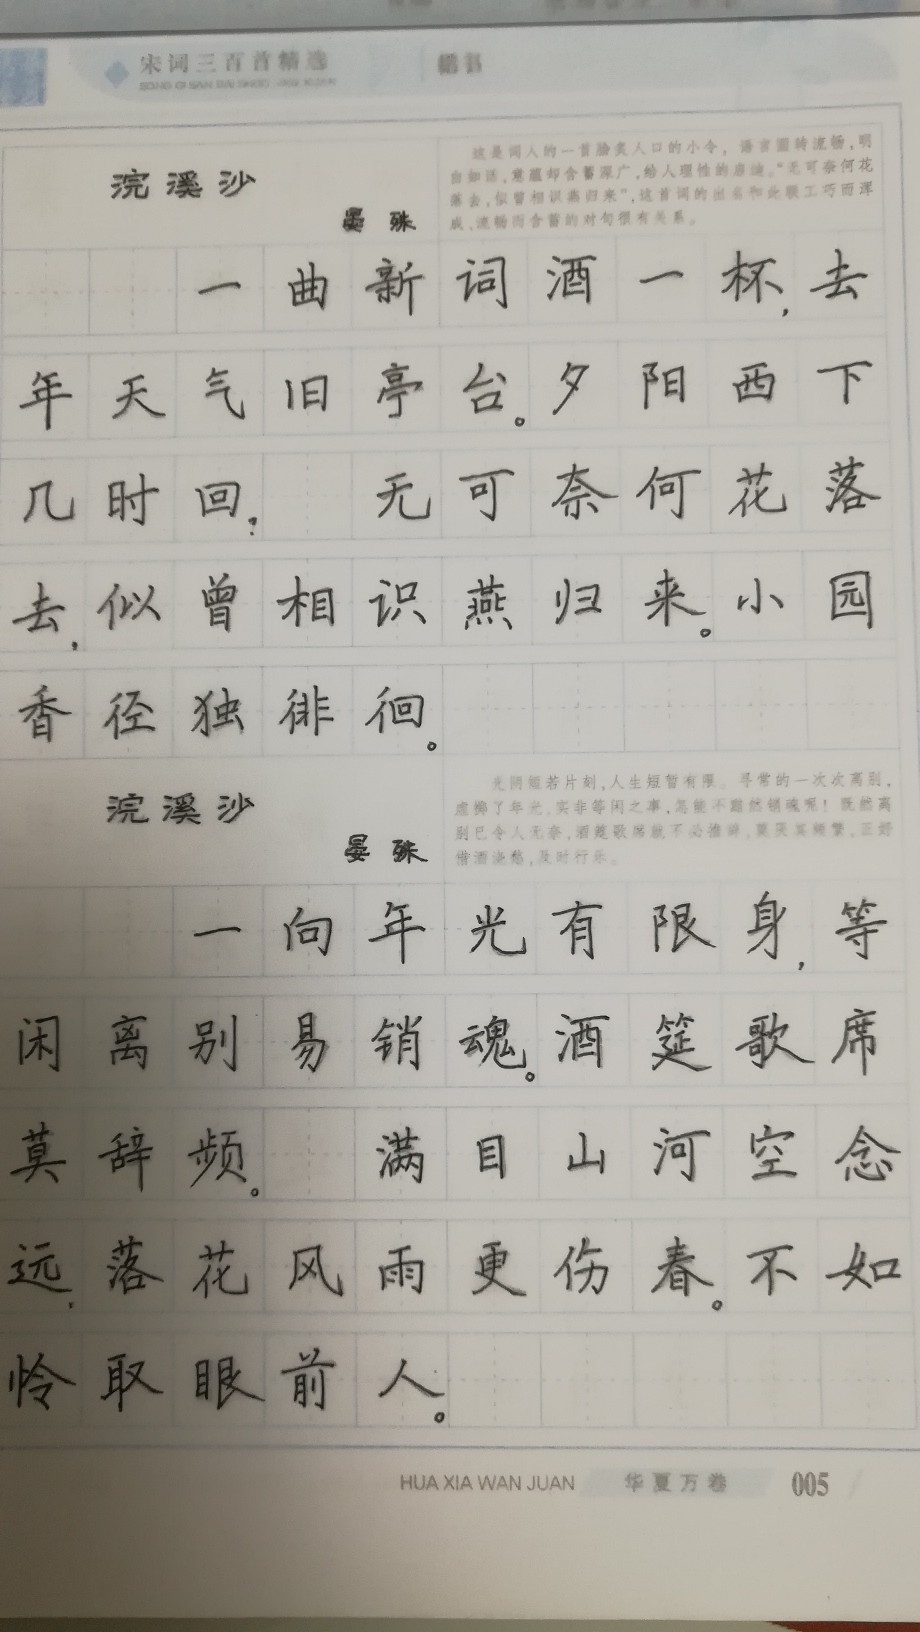 宋词三百首精选
楷书
浣溪沙
晏殊
这是词人的一首脍炙人口的小令，语言圆转流畅，明
白如话，意蕴却含蓄深广，给人理性的启迪。“无可奈何花
落去，似曾相识燕归来”，这首词的出名和此联工巧而浑
成、流畅而含蓄的对句很有关系。
一曲新词酒一杯，去
年天气旧亭台。夕阳西下
几时回？ 无可奈何花落
去，似曾相识燕归来。小园
香径独徘徊。
浣溪沙
晏殊
光阴短若片刻，人生短暂有限。寻常的一次次离别，
虚掷了年光，实非等闲之事，怎能不黯然销魂呢！既然离
别已令人无奈，酒筵歌席就不必推辞，莫厌其频繁，正好
借酒浇愁，及时行乐。
一向年光有限身，等
闲离别易销魂。酒筵歌席
莫辞频。 满目山河空念
远，落花风雨更伤春。不如
怜取眼前人。
HUA XIA WAN JUAN 华夏万卷 005